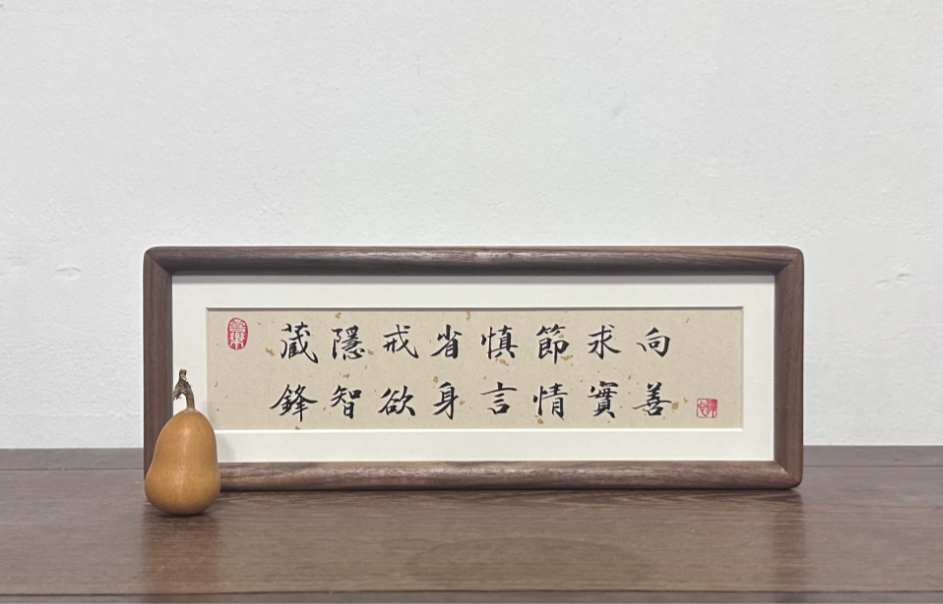 藏鋒
隱智
戒欲
省身
慎言
節情
求實
向善